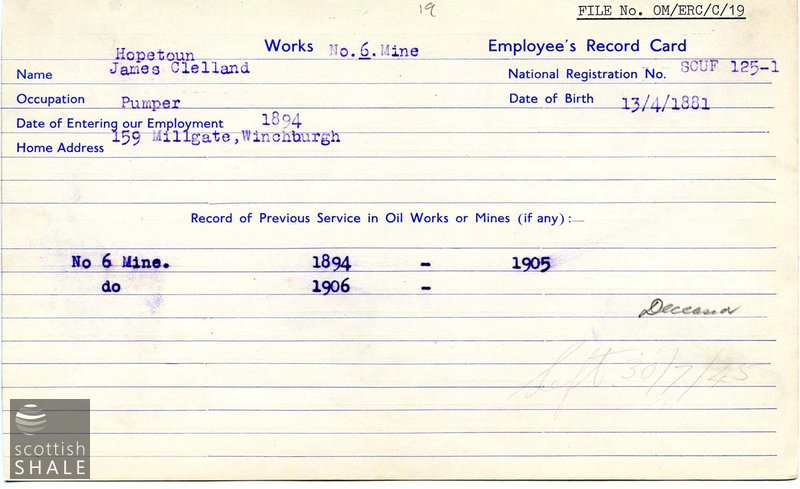 19
FILE No. OM/ERC/C/19
Hopetoun Works No.6.Mine Employee's Record Card
Name James Clelland National Registration No. SCUF 125-1
Occupation Pumper Date of Birth 13/4/1881
Date of Entering our Employment 1894
Home Address 159 Millgate,Winchburgh
Record of Previous Service in Oil Works or Mines (if any):—
No 6 Mine. 1894 - 1905
do 1906 -
Deceased
Left 30/7/45
scottish
SHALE